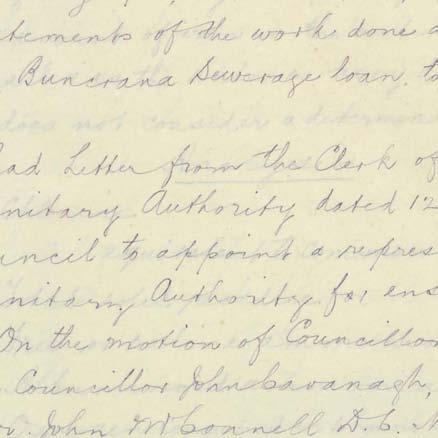 atements of the work done a
Buncrana Sewerage loan to
does not consider a determen
ead Letter from the Clerk of
nitary Authority dated 12
uncil to appoint a repres
nitary Authority for ens
On the motion of Councillor
Councillor John Cavanagh,
r. John McConnell D.C.